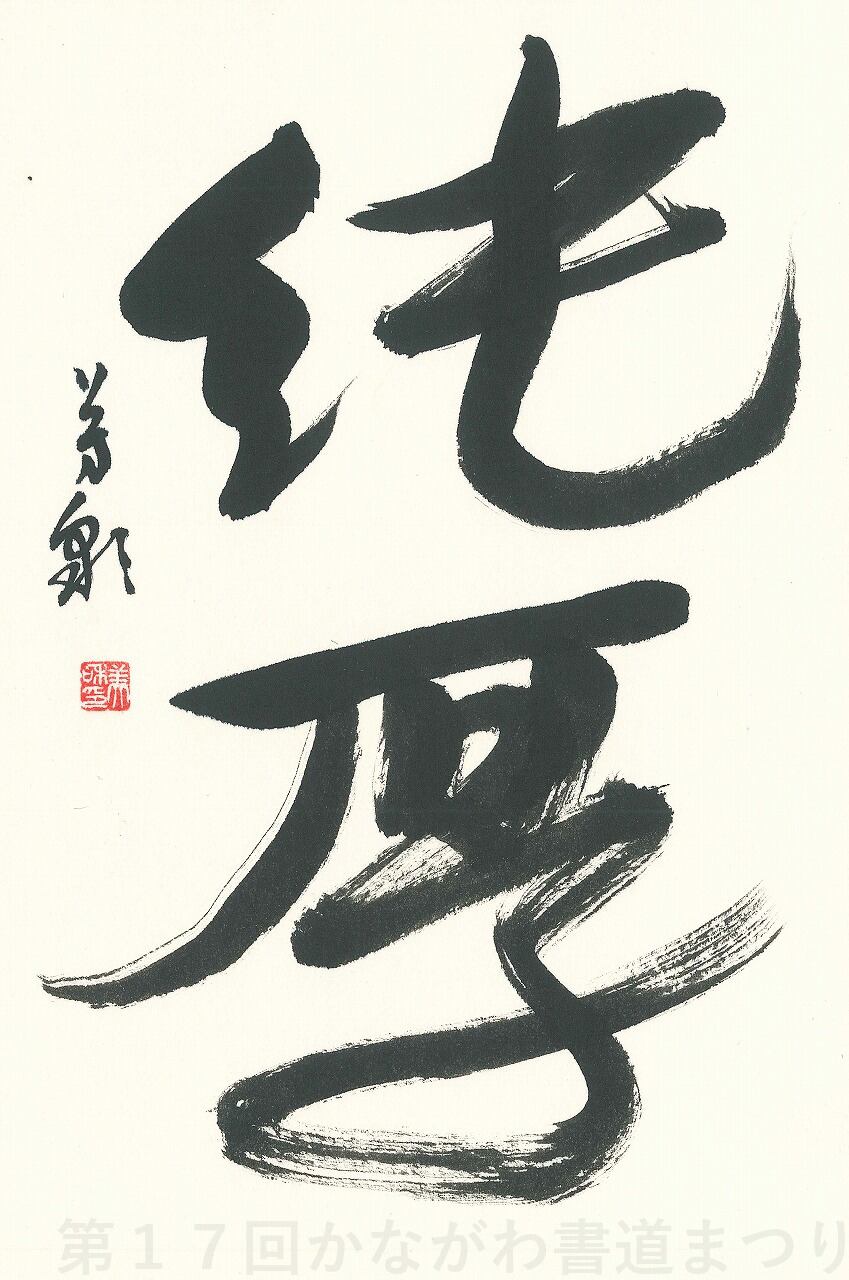 純厚
芳泉
第17回かながわ書道まつり